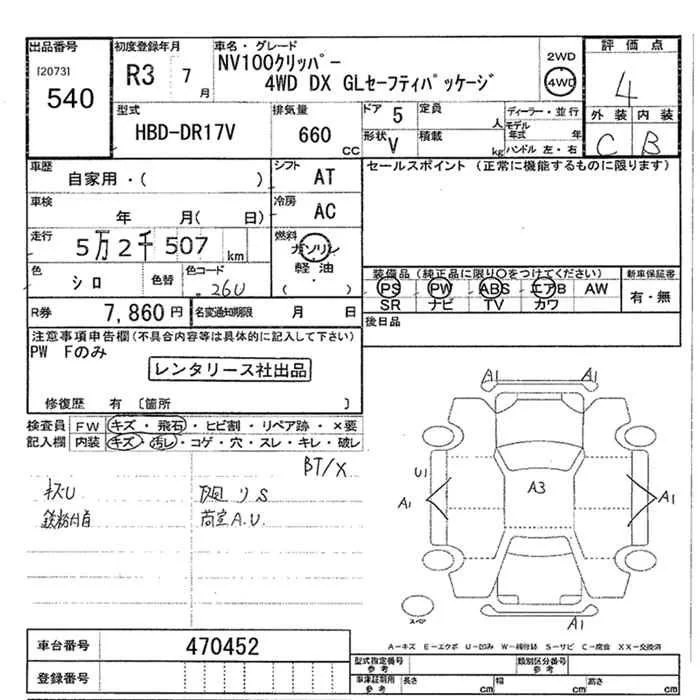 出品番号
[2073]
540
初度登録年月
R3 7月
車名・グレード
NV100クリッパー
4WD DX GLセーフティパッケージ
2WD
4WD
評価点
4
外装 内装
C B
型式
HBD-DR17V
排気量
660
CC
ドア 5
定員
人
形状 V
積載
kg
ディーラー・並行
モデル年式 年
ハンドル 左・右
車歴
自家用・( )
シフト
AT
車検
年 月( 日)
冷房
AC
走行
5万2千507 km
燃料
ガソリン
軽油
( ・ )
色
シロ
色替
色コード
26U
R券
7,860円
名変通知期限
月 日
セールスポイント (正常に機能するものに限ります)
装備品 (純正品に限り〇をつけてください)
PS PW ABS エアB AW
SR ナビ TV カワ
新車保証書
有・無
後日品
注意事項申告欄(不具合内容等は具体的に記入して下さい)
PW Fのみ
レンタリース社出品
修復歴 有 [箇所 ]
検査員記入欄
FW キズ・飛石・ヒビ割・リペア跡・×要
内装 キズ・汚レ・コゲ・穴・スレ・キレ・破レ
BT/X
キズU
リS
鉄粉付着
荷室A.U.
A1
A1
U1
A1
A3
A1
スペア
A1
A-キズ E-エクボ U-凹み W-補修跡 S-サビ C-腐食 XX-交換済
車台番号
470452
登録番号
型式指定番号
参考
類別区分番号
参考
車庫証明用
参考
長さ cm
幅 cm
高さ cm